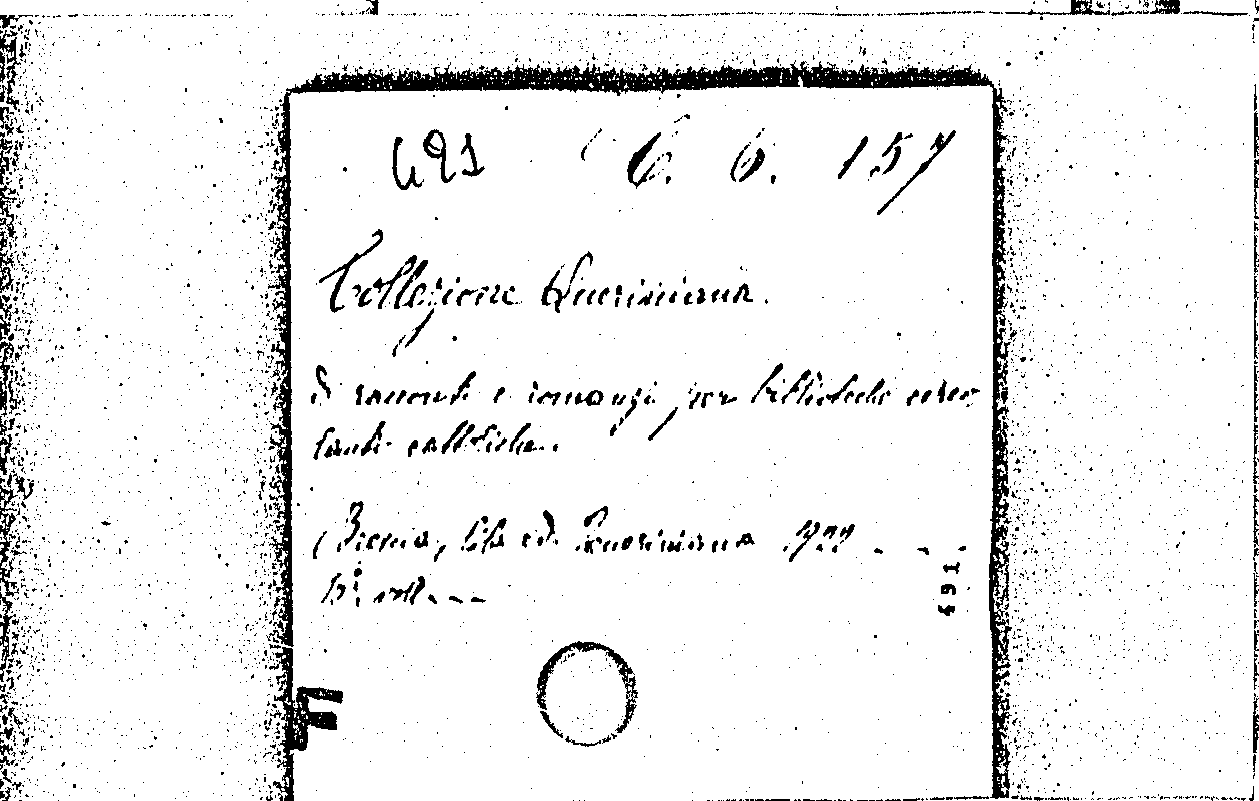 491 6. 6. 157
Collezione Queriniana.
di racconti e romanzi per biblioteche circo
lanti cattoliche.
Brescia, ed. Queriniana 1922 - - -
in voll. - - -
491.